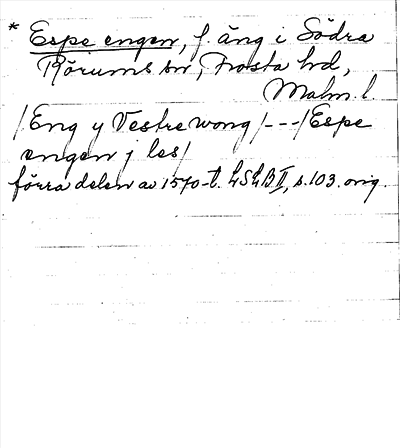 * Espe engen, f. äng i Södra
Rörums sn, Frosta hd,
Malm. l.
/Eng y Vestre wong/---/Espe
engen j les/
förra delen av 1570-t. LSLB II, s. 103. orig.